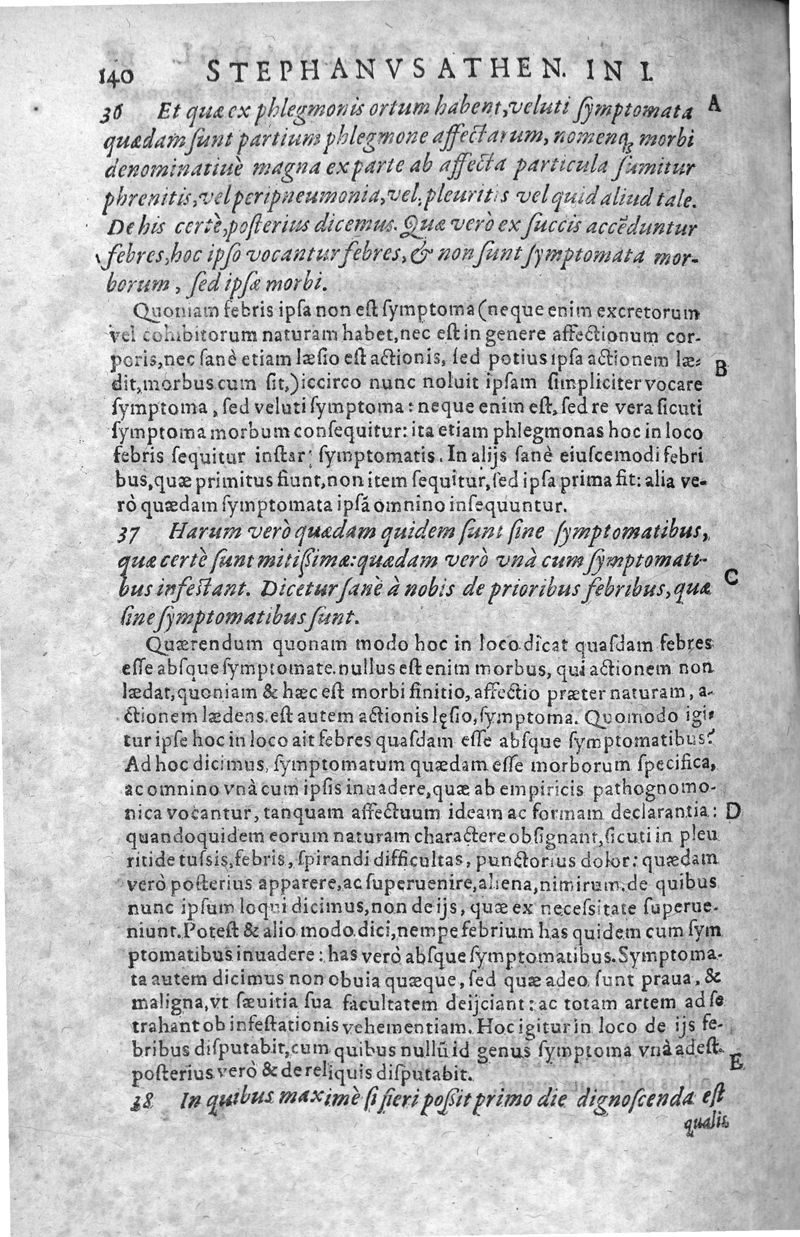 140 STEPHANVS ATHEN. IN I.
36 Et quæ ex phlegmonis ortum habent, veluti ſymptomata A
quædam ſunt partium phlegmone affectarum, nomenq; morbi
denominatiuè magna ex parte ab affecta particula ſumitur
phrenitis, vel peripneumonia, vel, pleuritis vel quid aliud tale.
De his certè, poſterius dicemus. Quæ verò ex ſuccis accẽduntur
febres, hoc ipſo vocantur febres, & non ſunt ſymptomata mor-
borum, ſed ipſæ morbi.
Quoniam febris ipſa non eſt ſymptoma (neque enim excretorum
vel cohibitorum naturam habet, nec eſt in genere affectionum cor-
poris, nec ſanè etiam læſio eſt actionis, ſed potius ipſa actionem læ- B
dit, morbus cum ſit,) iccirco nunc noluit ipſam ſimpliciter vocare
ſymptoma, ſed veluti ſymptoma: neque enim eſt, ſed re vera ſicuti
ſymptoma morbum conſequitur: ita etiam phlegmonas hoc in loco
febris ſequitur inſtar ſymptomatis. In alijs ſanè eiuſcemodi febri
bus, quæ primitus fiunt, non item ſequitur, ſed ipſa prima fit: alia ve-
rò quædam ſymptomata ipſã omnino inſequuntur.
37 Harum verò quædam quidem ſunt ſine ſymptomatibus,
quæ certè ſunt mitiſſimæ: quædam verò vnà cum ſymptomati-
bus infeſtant. Dicetur ſanè à nobis de prioribus febribus, quæ C
ſine ſymptomatibus ſunt.
Quærendum quonam modo hoc in loco dicat quaſdam febres
eſſe abſque ſymptomate. nullus eſt enim morbus, qui actionem non
lædat, quoniam & hæc eſt morbi finitio, affectio præter naturam, a-
ctionem lædens. eſt autem actionis lęſio, ſymptoma. Quomodo igi-
tur ipſe hoc in loco ait febres quaſdam eſſe abſque ſymptomatibus?
Ad hoc dicimus, ſymptomatum quædam eſſe morborum ſpecifica,
ac omnino vnà cum ipſis inuadere, quæ ab empiricis pathognomo-
nica vocantur, tanquam affectuum ideam ac formam declarantia: D
quandoquidem eorum naturam charactere obſignant, ſicuti in pleu
ritide tuſsis, febris, ſpirandi difficultas, punctorius dolor: quædam
verò poſterius apparere, ac ſuperuenire, aliena, nimirum. de quibus
nunc ipſum loqui dicimus, non de ijs, quæ ex neceſsitate ſuperue-
niunt. Poteſt & alio modo dici, nempe febrium has quidem cum ſym
ptomatibus inuadere: has verò abſque ſymptomatibus. Symptoma-
ta autem dicimus non obuia quæque, ſed quæ adeo ſunt praua, &
maligna, vt ſæuitia ſua facultatem deijciant: ac totam artem ad ſe
trahant ob infeſtationis vehementiam. Hoc igitur in loco de ijs fe-
bribus diſputabit, cum quibus nullũ id genus ſymptoma vnà adeſt. E
poſterius verò & de reliquis diſputabit.
38 In quibus maximè ſi fieri poſſit primo die dignoſcenda eſt
qualis